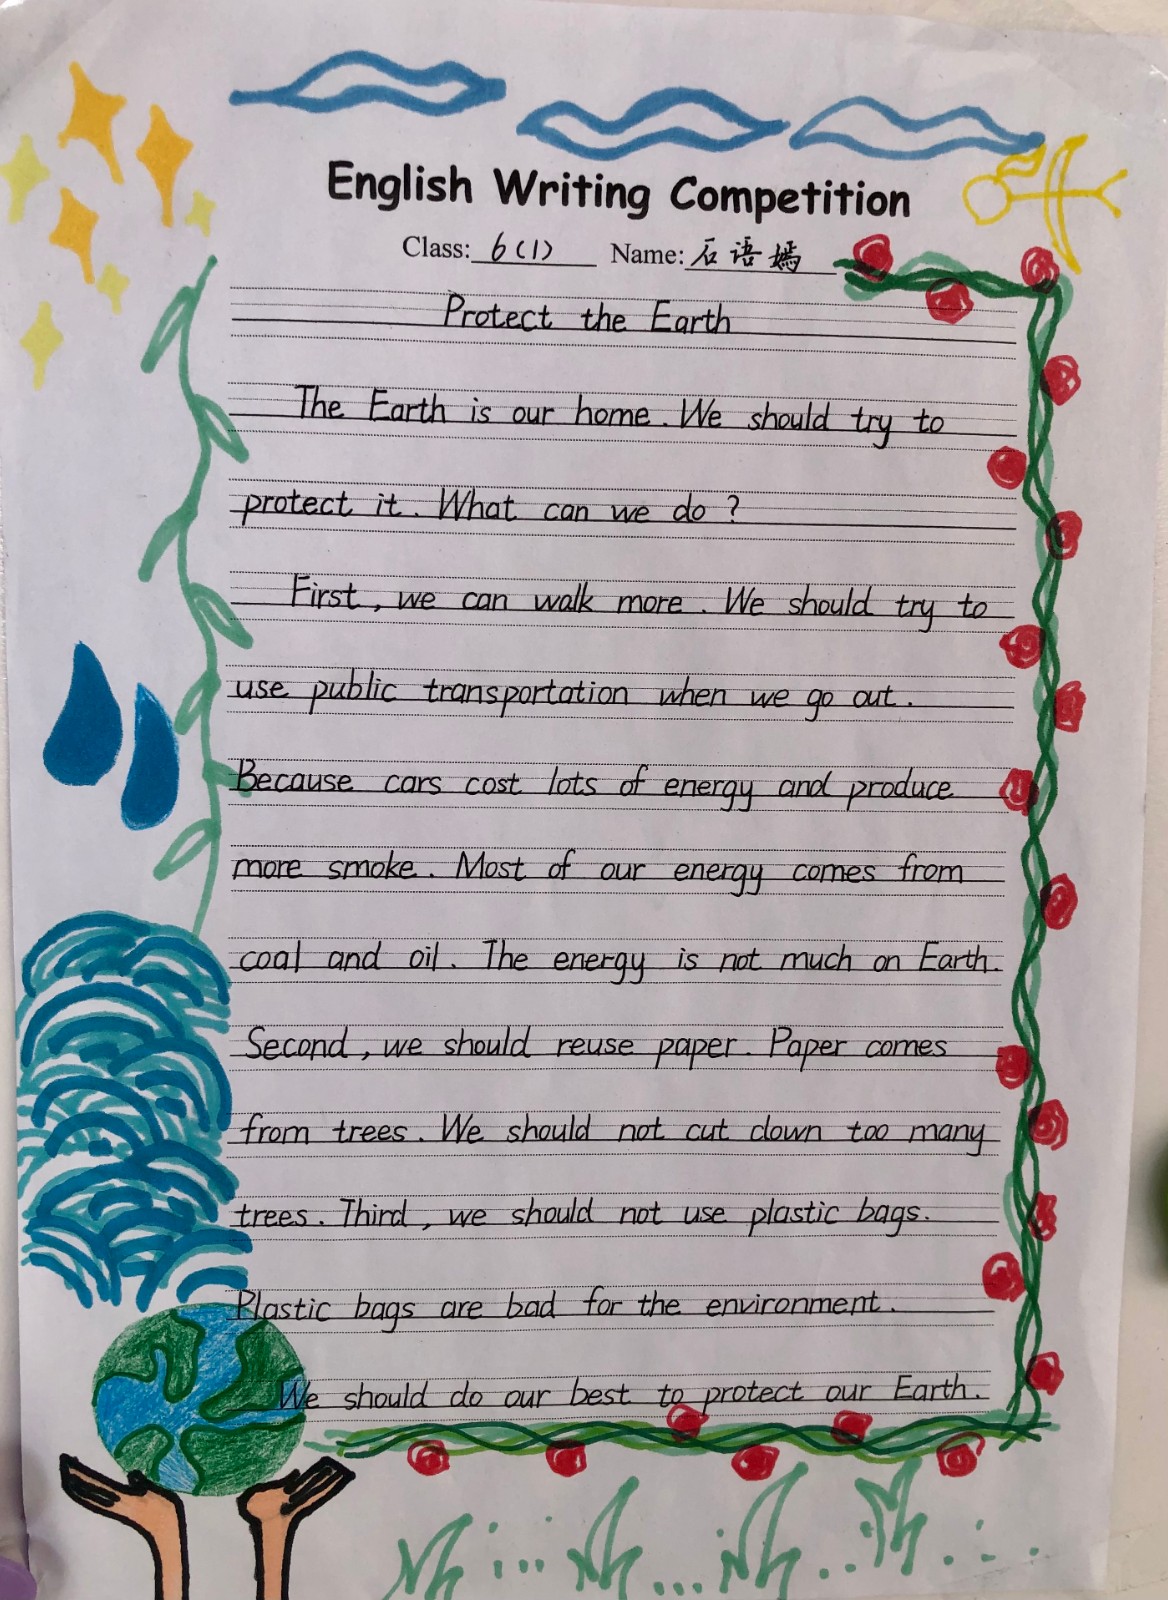 English Writing Competition
Class: 6(1) Name: 石语嫣
Protect the Earth
The Earth is our home. We should try to
protect it. What can we do?
First, we can walk more. We should try to
use public transportation when we go out.
Because cars cost lots of energy and produce
more smoke. Most of our energy comes from
coal and oil. The energy is not much on Earth.
Second, we should reuse paper. Paper comes
from trees. We should not cut down too many
trees. Third, we should not use plastic bags.
Plastic bags are bad for the environment.
We should do our best to protect our Earth.